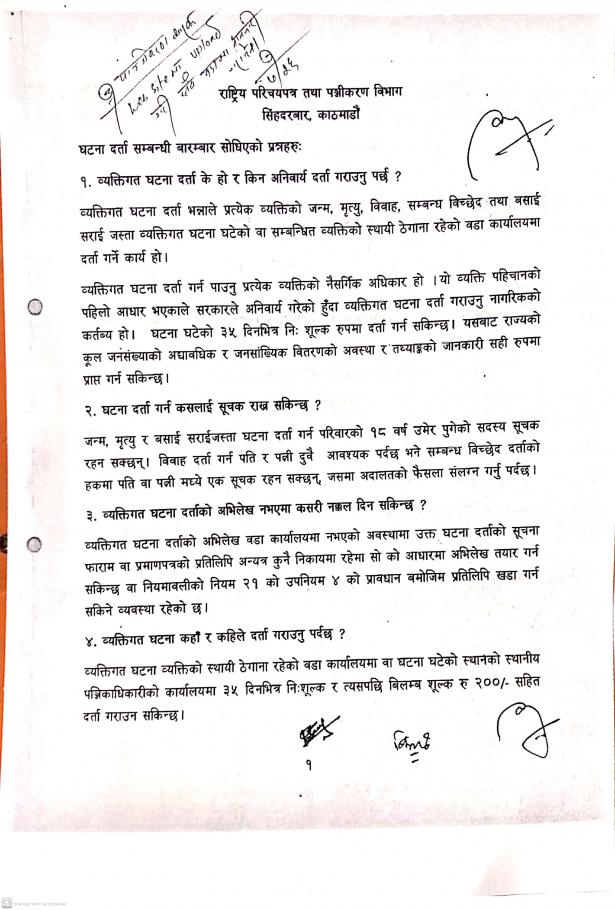 web site मा upload
राष्ट्रिय परिचयपत्र तथा पञ्जीकरण विभाग
सिंहदरबार, काठमाडौं
घटना दर्ता सम्बन्धी बारम्बार सोधिएको प्रश्नहरुः
१. व्यक्तिगत घटना दर्ता के हो र किन अनिवार्य दर्ता गराउनु पर्छ ?
व्यक्तिगत घटना दर्ता भन्नाले प्रत्येक व्यक्तिको जन्म, मृत्यु, विवाह, सम्बन्ध विच्छेद तथा बसाई
सराई जस्ता व्यक्तिगत घटना घटेको वा सम्बन्धित व्यक्तिको स्थायी ठेगाना रहेको वडा कार्यालयमा
दर्ता गर्ने कार्य हो।
व्यक्तिगत घटना दर्ता गर्न पाउनु प्रत्येक व्यक्तिको नैसर्गिक अधिकार हो । यो व्यक्ति पहिचानको
पहिलो आधार भएकाले सरकारले अनिवार्य गरेको हुँदा व्यक्तिगत घटना दर्ता गराउनु नागरिकको
कर्तव्य हो। घटना घटेको ३५ दिनभित्र निः शूल्क रुपमा दर्ता गर्न सकिन्छ। यसबाट राज्यको
कूल जनसंख्याको अद्यावधिक र जनसांख्यिक वितरणको अवस्था र तथ्याङ्कको जानकारी सही रुपमा
प्राप्त गर्न सकिन्छ।
२. घटना दर्ता गर्न कसलाई सूचक राख्न सकिन्छ ?
जन्म, मृत्यु र बसाई सराईजस्ता घटना दर्ता गर्न परिवारको १८ वर्ष उमेर पुगेको सदस्य सूचक
रहन सक्छन्। विवाह दर्ता गर्न पति र पत्नी दुवै आवश्यक पर्दछ भने सम्बन्ध विच्छेद दर्ताको
हकमा पति वा पत्नी मध्ये एक सूचक रहन सक्छन्, जसमा अदालतको फैसला संलग्न गर्नु पर्दछ।
३. व्यक्तिगत घटना दर्ताको अभिलेख नभएमा कसरी नक्कल दिन सकिन्छ ?
व्यक्तिगत घटना दर्ताको अभिलेख वडा कार्यालयमा नभएको अवस्थामा उक्त घटना दर्ताको सूचना
फाराम वा प्रमाणपत्रको प्रतिलिपि अन्यत्र कुनै निकायमा रहेमा सो को आधारमा अभिलेख तयार गर्न
सकिन्छ वा नियमावलीको नियम २१ को उपनियम ४ को प्रावधान बमोजिम प्रतिलिपि खडा गर्न
सकिने व्यवस्था रहेको छ।
४. व्यक्तिगत घटना कहाँ र कहिले दर्ता गराउनु पर्दछ ?
व्यक्तिगत घटना व्यक्तिको स्थायी ठेगाना रहेको वडा कार्यालयमा वा घटना घटेको स्थानको स्थानीय
पञ्जिकाधिकारीको कार्यालयमा ३५ दिनभित्र निःशूल्क र त्यसपछि बिलम्ब शूल्क रु २००/- सहित
दर्ता गराउन सकिन्छ।
१
CS Scanned with CamScanner